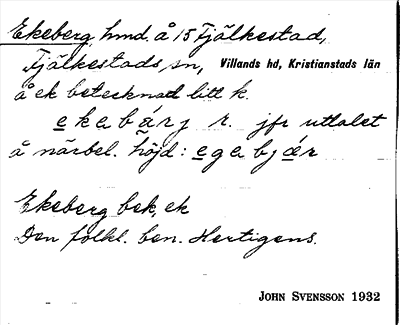 Ekeberg, hmd. å 15 Fjälkestad,
Fjälkestads sn, Villands hd, Kristianstads län
å ek betecknad litt k.
ekabárj r. jfr uttalet
å närbel. höjd: egabjær
Ekeberg bek, ek
Den folkl. ben. Hertigens.
JOHN SVENSSON 1932